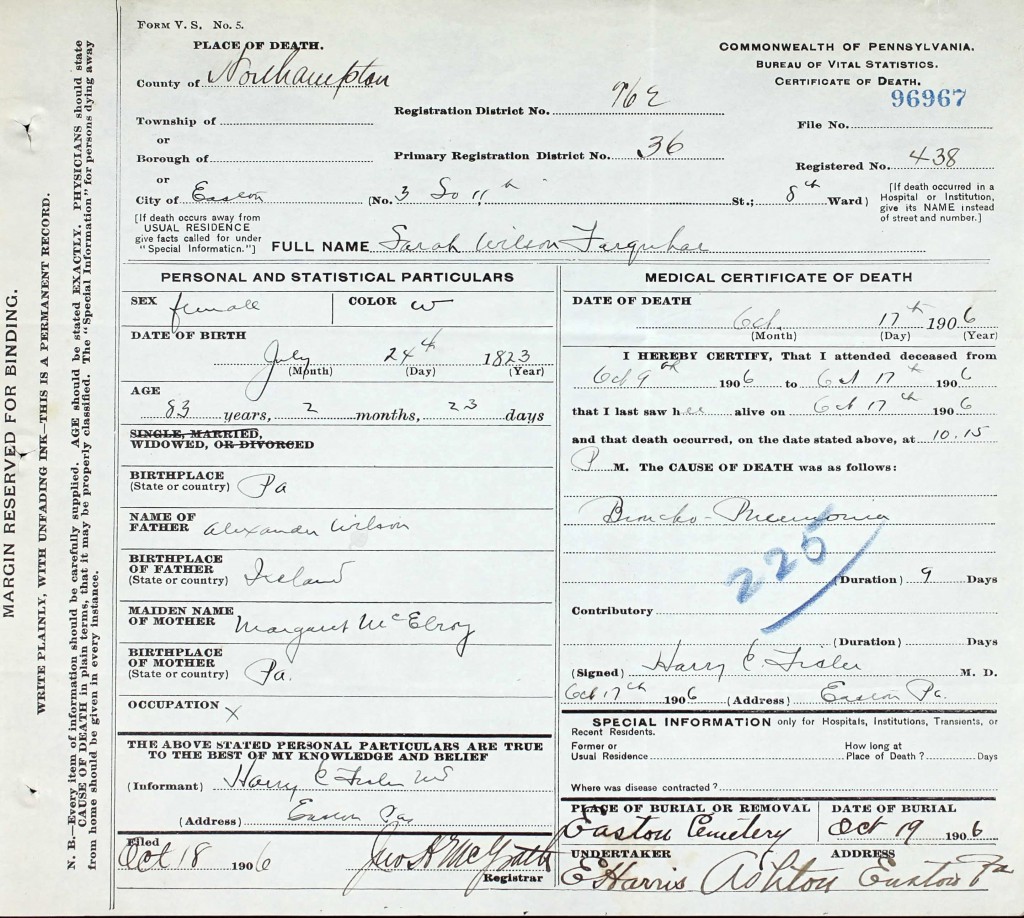 FORM V. S. No. 5.
PLACE OF DEATH.
County of Northampton
Township of
or
Borough of
or
City of Easton
[If death occurs away from
USUAL RESIDENCE
give facts called for under
"Special Information."]
COMMONWEALTH OF PENNSYLVANIA.
BUREAU OF VITAL STATISTICS.
CERTIFICATE OF DEATH.
96967
Registration District No. 962
File No.
Primary Registration District No. 36
Registered No. 438
(No. 3 So 11th St.; 8th Ward)
[If death occurred in a
Hospital or Institution,
give its NAME instead
of street and number.]
FULL NAME Sarah Wilson Farquhar
PERSONAL AND STATISTICAL PARTICULARS
SEX female COLOR W
DATE OF BIRTH
July 24th 1823
(Month) (Day) (Year)
AGE
83 years, 2 months, 23 days
SINGLE, MARRIED,
WIDOWED, OR DIVORCED
BIRTHPLACE
(State or country) Pa
NAME OF
FATHER Alexander Wilson
BIRTHPLACE
OF FATHER
(State or country) Ireland
MAIDEN NAME
OF MOTHER Margaret McElroy
BIRTHPLACE
OF MOTHER
(State or country) Pa.
OCCUPATION X
THE ABOVE STATED PERSONAL PARTICULARS ARE TRUE
TO THE BEST OF MY KNOWLEDGE AND BELIEF
(Informant) Harry C Fisler MD
(Address) Easton Pa
Filed
Oct 18 1906 Jno H McGrath
Registrar
MEDICAL CERTIFICATE OF DEATH
DATE OF DEATH
Oct. 17th 1906
(Month) (Day) (Year)
I HEREBY CERTIFY, That I attended deceased from
Oct 9th 1906 to Oct 17th 1906
that I last saw her alive on Oct 17th 1906
and that death occurred, on the date stated above, at 10.15
P M. The CAUSE OF DEATH was as follows:
Broncho-Pneumonia
225
(Duration) 9 Days
Contributory
(Duration) Days
(Signed) Harry C Fisler M. D.
Oct 17th 1906 (Address) Easton Pa.
SPECIAL INFORMATION only for Hospitals, Institutions, Transients, or
Recent Residents.
Former or
Usual Residence
How long at
Place of Death? Days
Where was disease contracted?
PLACE OF BURIAL OR REMOVAL
Easton Cemetery
DATE OF BURIAL
Oct 19 1906
UNDERTAKER
E Harris Ashton
ADDRESS
Easton Pa
MARGIN RESERVED FOR BINDING.
WRITE PLAINLY, WITH UNFADING INK—THIS IS A PERMANENT RECORD.
N. B.—Every item of information should be carefully supplied. AGE should be stated EXACTLY. PHYSICIANS should state
CAUSE OF DEATH in plain terms, that it may be properly classified. The "Special Information" for persons dying away
from home should be given in every instance.